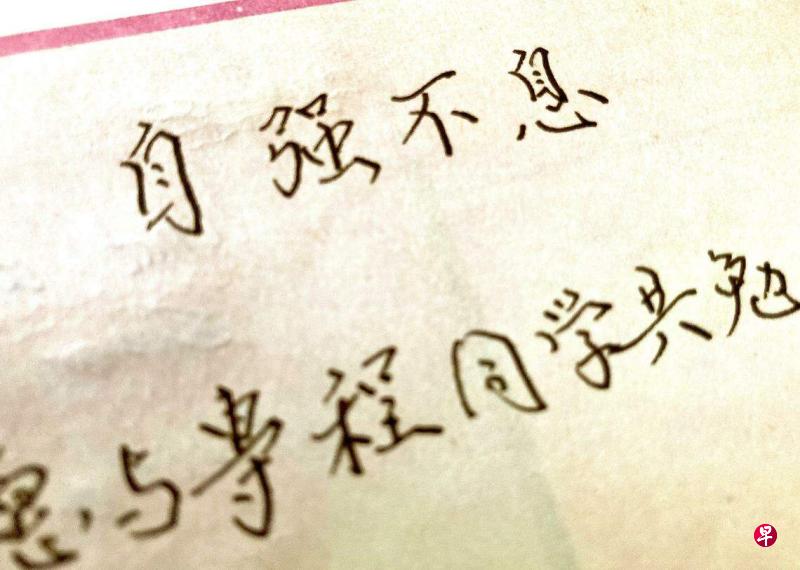 自强不息
愿与专程同学共勉
早